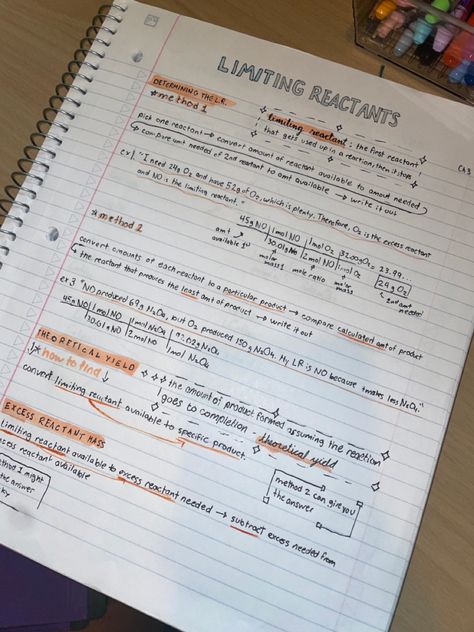 LIMITING REACTANTS
Ch 3
DETERMINING THE L.R.
*method 1
limiting reactant: the first reactant
that gets used up in a reaction, then it stops
pick one reactant → convert amount of reactant available to amout needed
↳ compare amt needed of 2nd reactant to amt available → write it out
ex) "I need 24g O₂ and have 52g of O₂, which is plenty. Therefore, O₂ is the excess reactant
and NO is the limiting reactant."
45g NO | 1mol NO | 1mol O₂ | 32.00g O₂ = 23.99...
30.01g NO | 2mol NO | 1mol O₂
24g O₂
amt available 1st
molar mass 1
mole ratio
molar mass
2nd amt needed
*method 2
convert amounts of each reactant to a particular product → compare calculated amt of product
↳ the reactant that produces the least amt of product → write it out
"NO produced 69g N₂O₄, but O₂ produced 150g N₂O₄. My LR is NO because it makes less N₂O₄."
45g NO | 1mol NO | 1mol N₂O₄ | 92.02g N₂O₄
30.01g NO | 2mol NO | 1mol N₂O₄
THEORETICAL YIELD
*how to find ↓
the amount of product formed assuming the reaction
goes to completion
theoretical yield
convert limiting reactant available to specific product
method 2 can give you
the answer
EXCESS REACTANT MASS
limiting reactant available to excess reactant needed → subtract excess needed from
excess reactant available
method 1 might
the answer